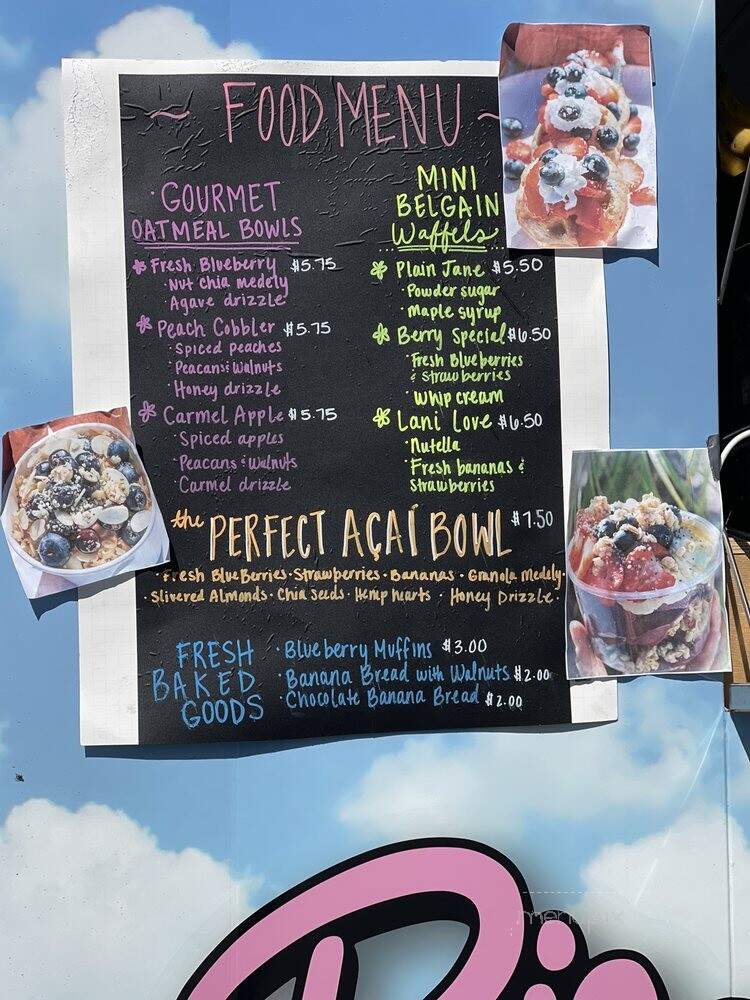 ~ FOOD MENU ~
·GOURMET
OATMEAL BOWLS
Fresh Blueberry $5.75
·Nut chia medely
·Agave drizzle
Peach Cobbler $5.75
·Spiced peaches
·Peacans & Walnuts
·Honey drizzle
Carmel Apple $5.75
·Spiced apples
·Peacans & Walnuts
·Carmel drizzle
MINI
BELGAIN
Waffels
Plain Jane $5.50
·Powder sugar
·Maple syrup
Berry Special $6.50
·Fresh Blueberries
& Strawberries
·Whip cream
Lani Love $6.50
·Nutella
·Fresh bananas &
strawberries
the PERFECT AÇAÍ BOWL $7.50
·Fresh BlueBerries·Strawberries·Bananas·Granola Medely·
·Slivered Almonds·Chia seeds·Hemp hearts·Honey Drizzle·
FRESH
BAKED
GOODS
·Blueberry Muffins $3.00
·Banana Bread with Walnuts $2.00
·Chocolate Banana Bread $2.00
menupix